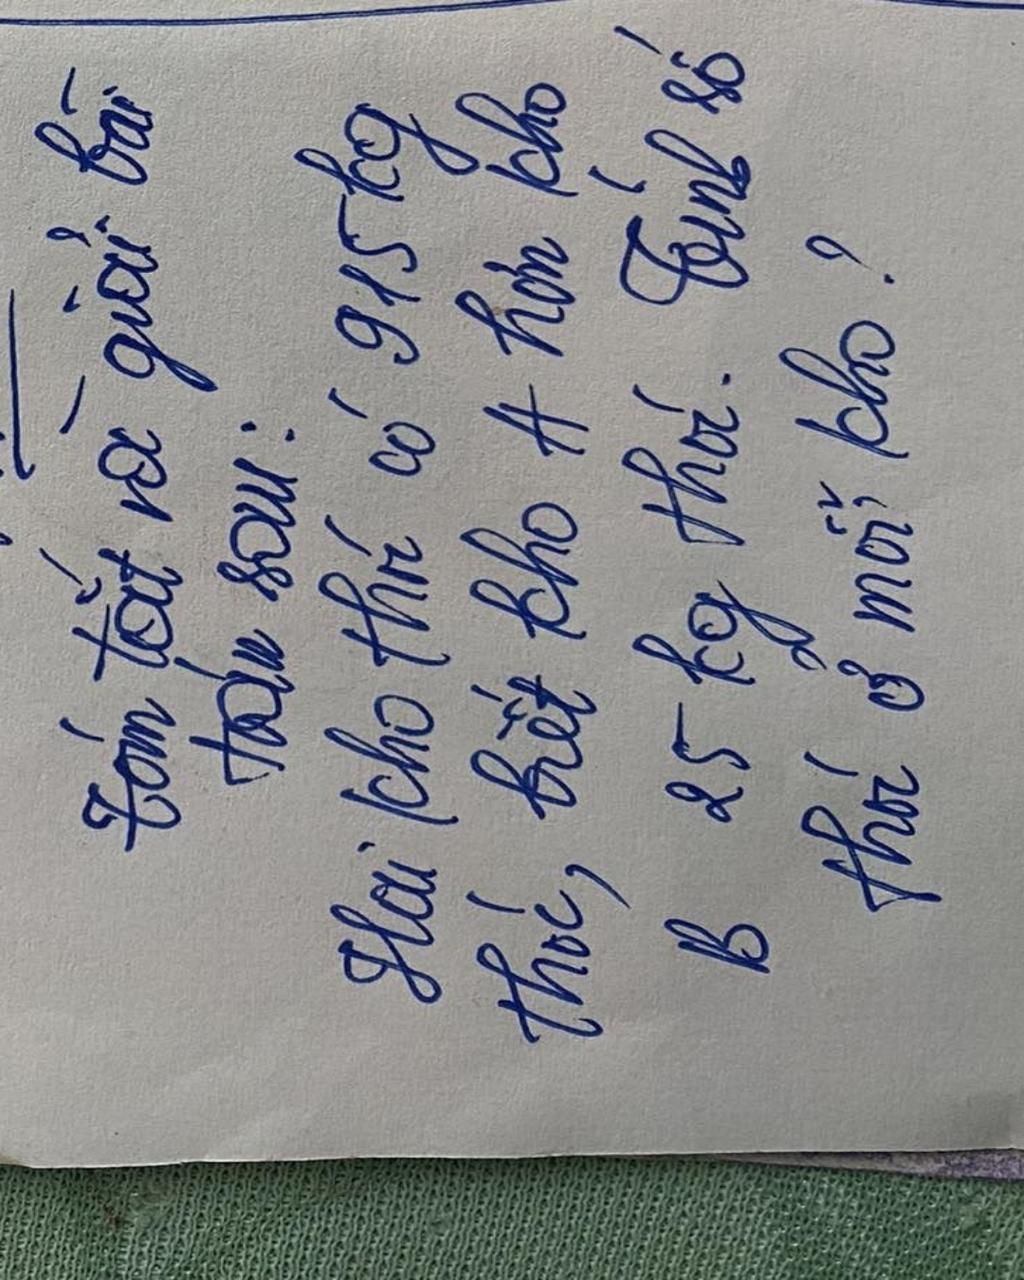 Tóm tắt và giải bài
toán sau:
Hai kho thóc có 915 kg
thóc, biết kho A hơn kho
B 25 kg thóc. Tính số
thóc ở mỗi kho?